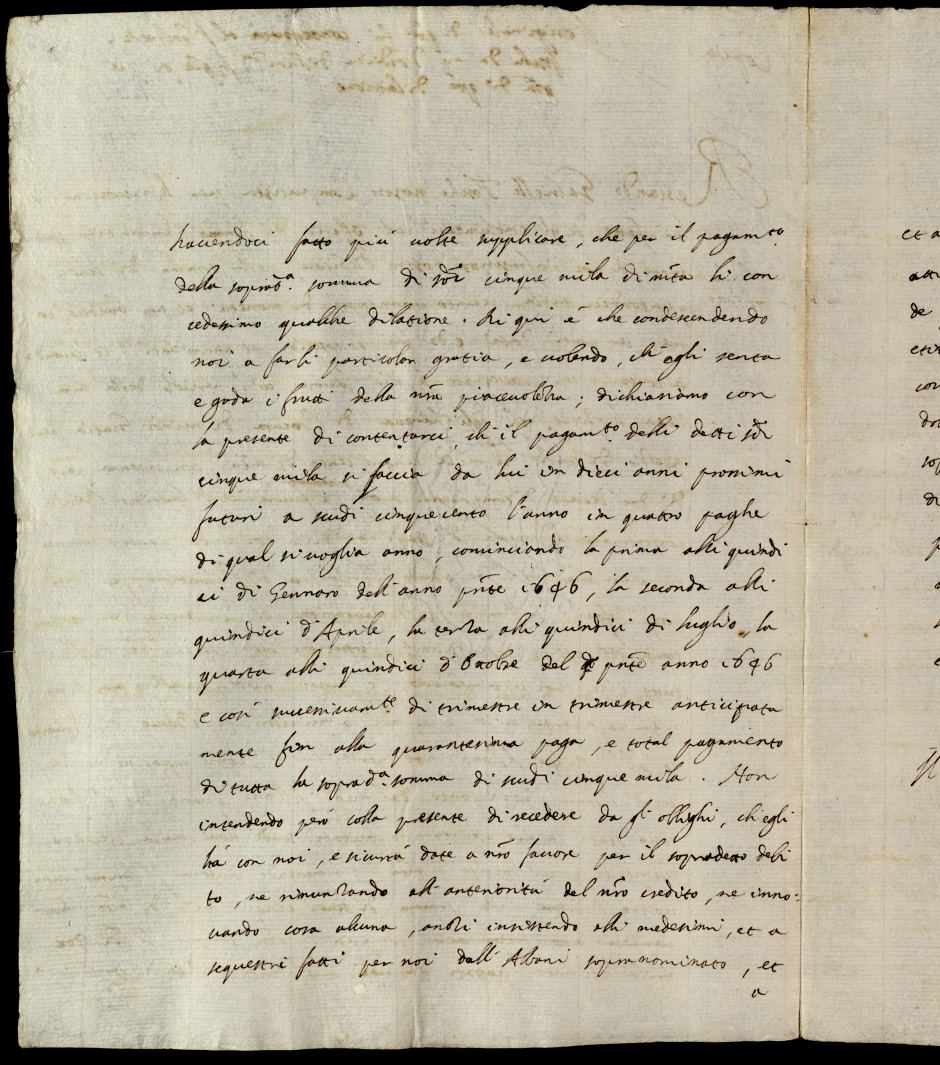 hauendoci fatto più uolte supplicare, che per il pagam.to
della soprad.a somma di sdi cinque mila di mta li con
cedessimo qualche dilatione. Di qui è che condescendendo
noi a farli particolar gratia, e uolendo, ch'egli senta
e goda i frutti della nra piaceuolezza; dichiariamo con
la presente di contentarci, ch'il pagam.to delli detti sdi
cinque mila si faccia da lui in dieci anni prossimi
futuri a scudi cinquecento l'anno in quattro paghe
di qual si uoglia anno, cominciando la prima alli quindi
ci di Gennaro dell'anno pnte 1646, la seconda alli
quindici d'Aprile, la terza alli quindici di luglio, la
quarta alli quindici d'Ottobre del pnte anno 1646
e così successiuam.te di trimestre in trimestre anticipata
mente fin alla quarantesima paga, e total pagamento
di tutta la soprad.a somma di scudi cinque mila. Non
intendendo però colla presente di recedere da gl'obblighi, ch'egli
hà con noi, e sicurtà date a nro fauore per il sopradetto debi
to, ne renuntiando all'anteriorità del nro credito, ne inno-
uando cosa alcuna, anzi insistendo alli medesimi, et a
sequestri fatti per noi dall'Albani sopranominato, et
a